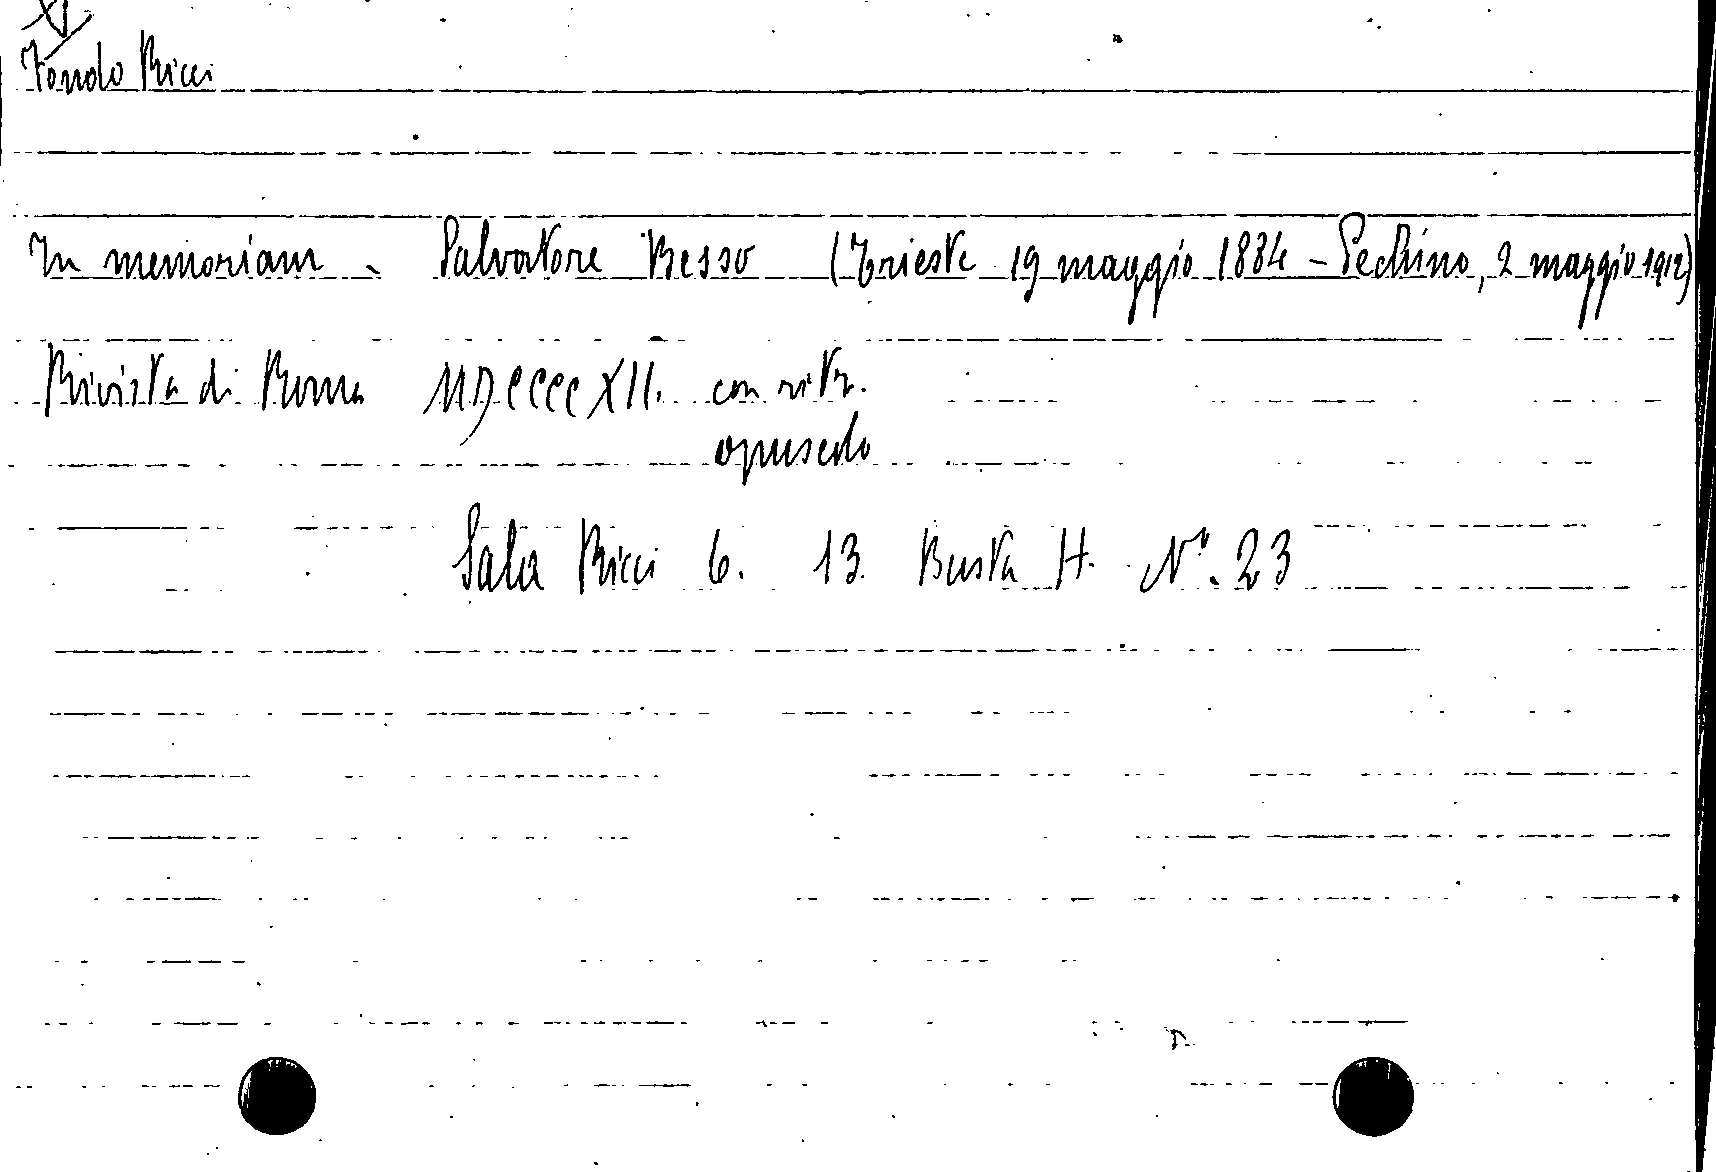 Fondo Ricci
In memoriam - Salvatore Besso (Trieste 19 maggio 1884 - Pechino, 2 maggio 1912)
Rivista di Roma MDCCCCXII. con ritr.
opuscolo
Sala Ricci 6. 13. Busta H. N°. 23